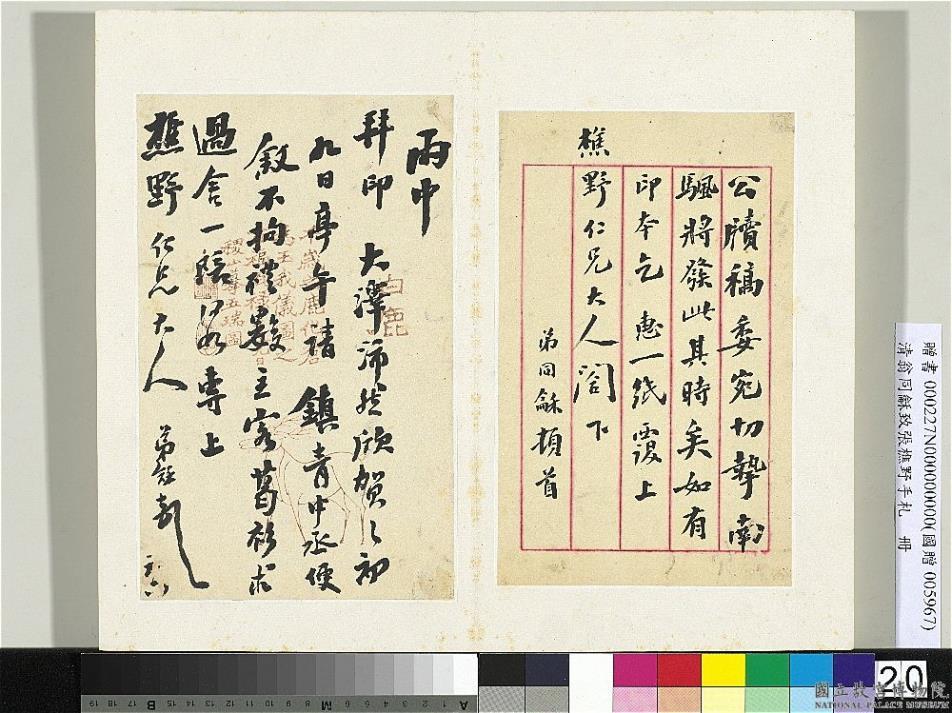 公牘稿委宛切摯南
颿將發此其時矣如有
印本乞惠一紙覆上
樵野仁兄大人閣下
弟同龢頓首
丙申
拜印 大澤沛然欣賀々初
九日亭午請 鎮青中丞便
飯不拘禮數主客葛衫求
過舍一陪 專上
樵野仁兄大人
白鹿
贈書 000227N000000000(國贈 005967)
清翁同龢致張樵野手札 冊
20
國立故宮博物院
NATIONAL PALACE MUSEUM